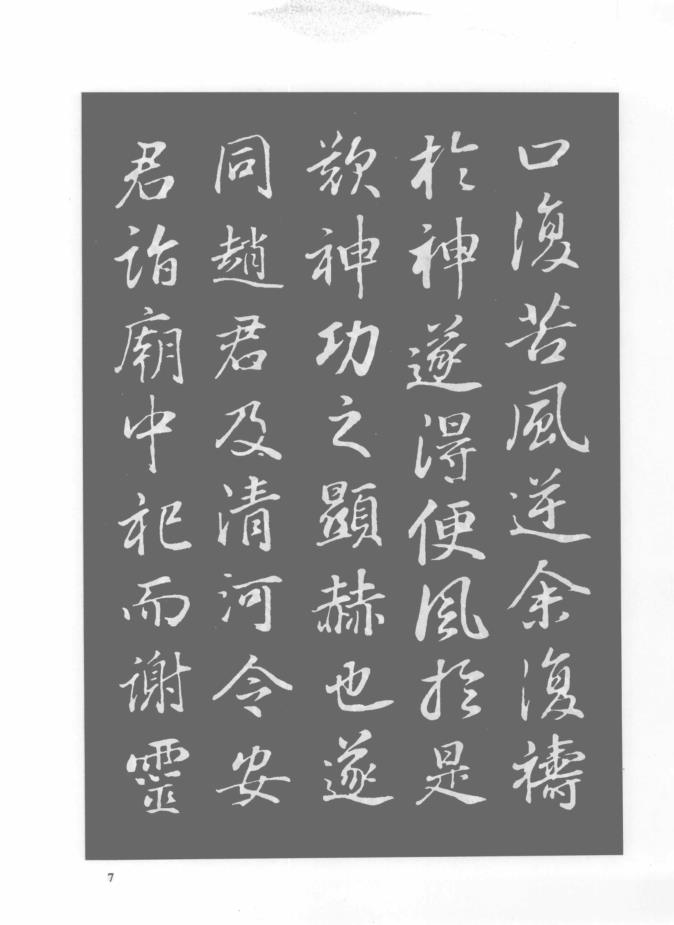 口復苦風逆余復禱
於神遂得便風於是
歎神功之顯赫也遂
同趙君及清河令安
君詣廟中祀而謝靈
7